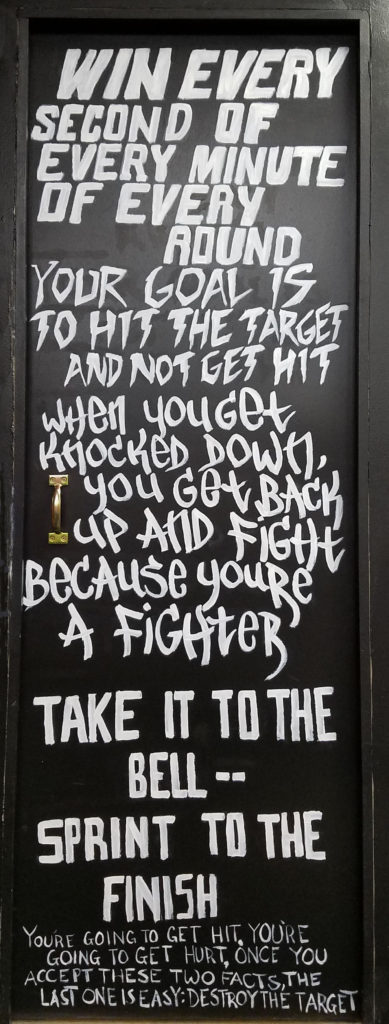 WIN EVERY
SECOND OF
EVERY MINUTE
OF EVERY
ROUND
YOUR GOAL IS
TO HIT THE TARGET
AND NOT GET HIT
when you get
knocked down,
you get BACK
up AND FIGHT
BECAUSE YOU'RE
A FIGHTER
TAKE IT TO THE
BELL --
SPRINT TO THE
FINISH
YOU'RE GOING TO GET HIT, YOU'RE
GOING TO GET HURT, ONCE YOU
ACCEPT THESE TWO FACTS, THE
LAST ONE IS EASY: DESTROY THE TARGET